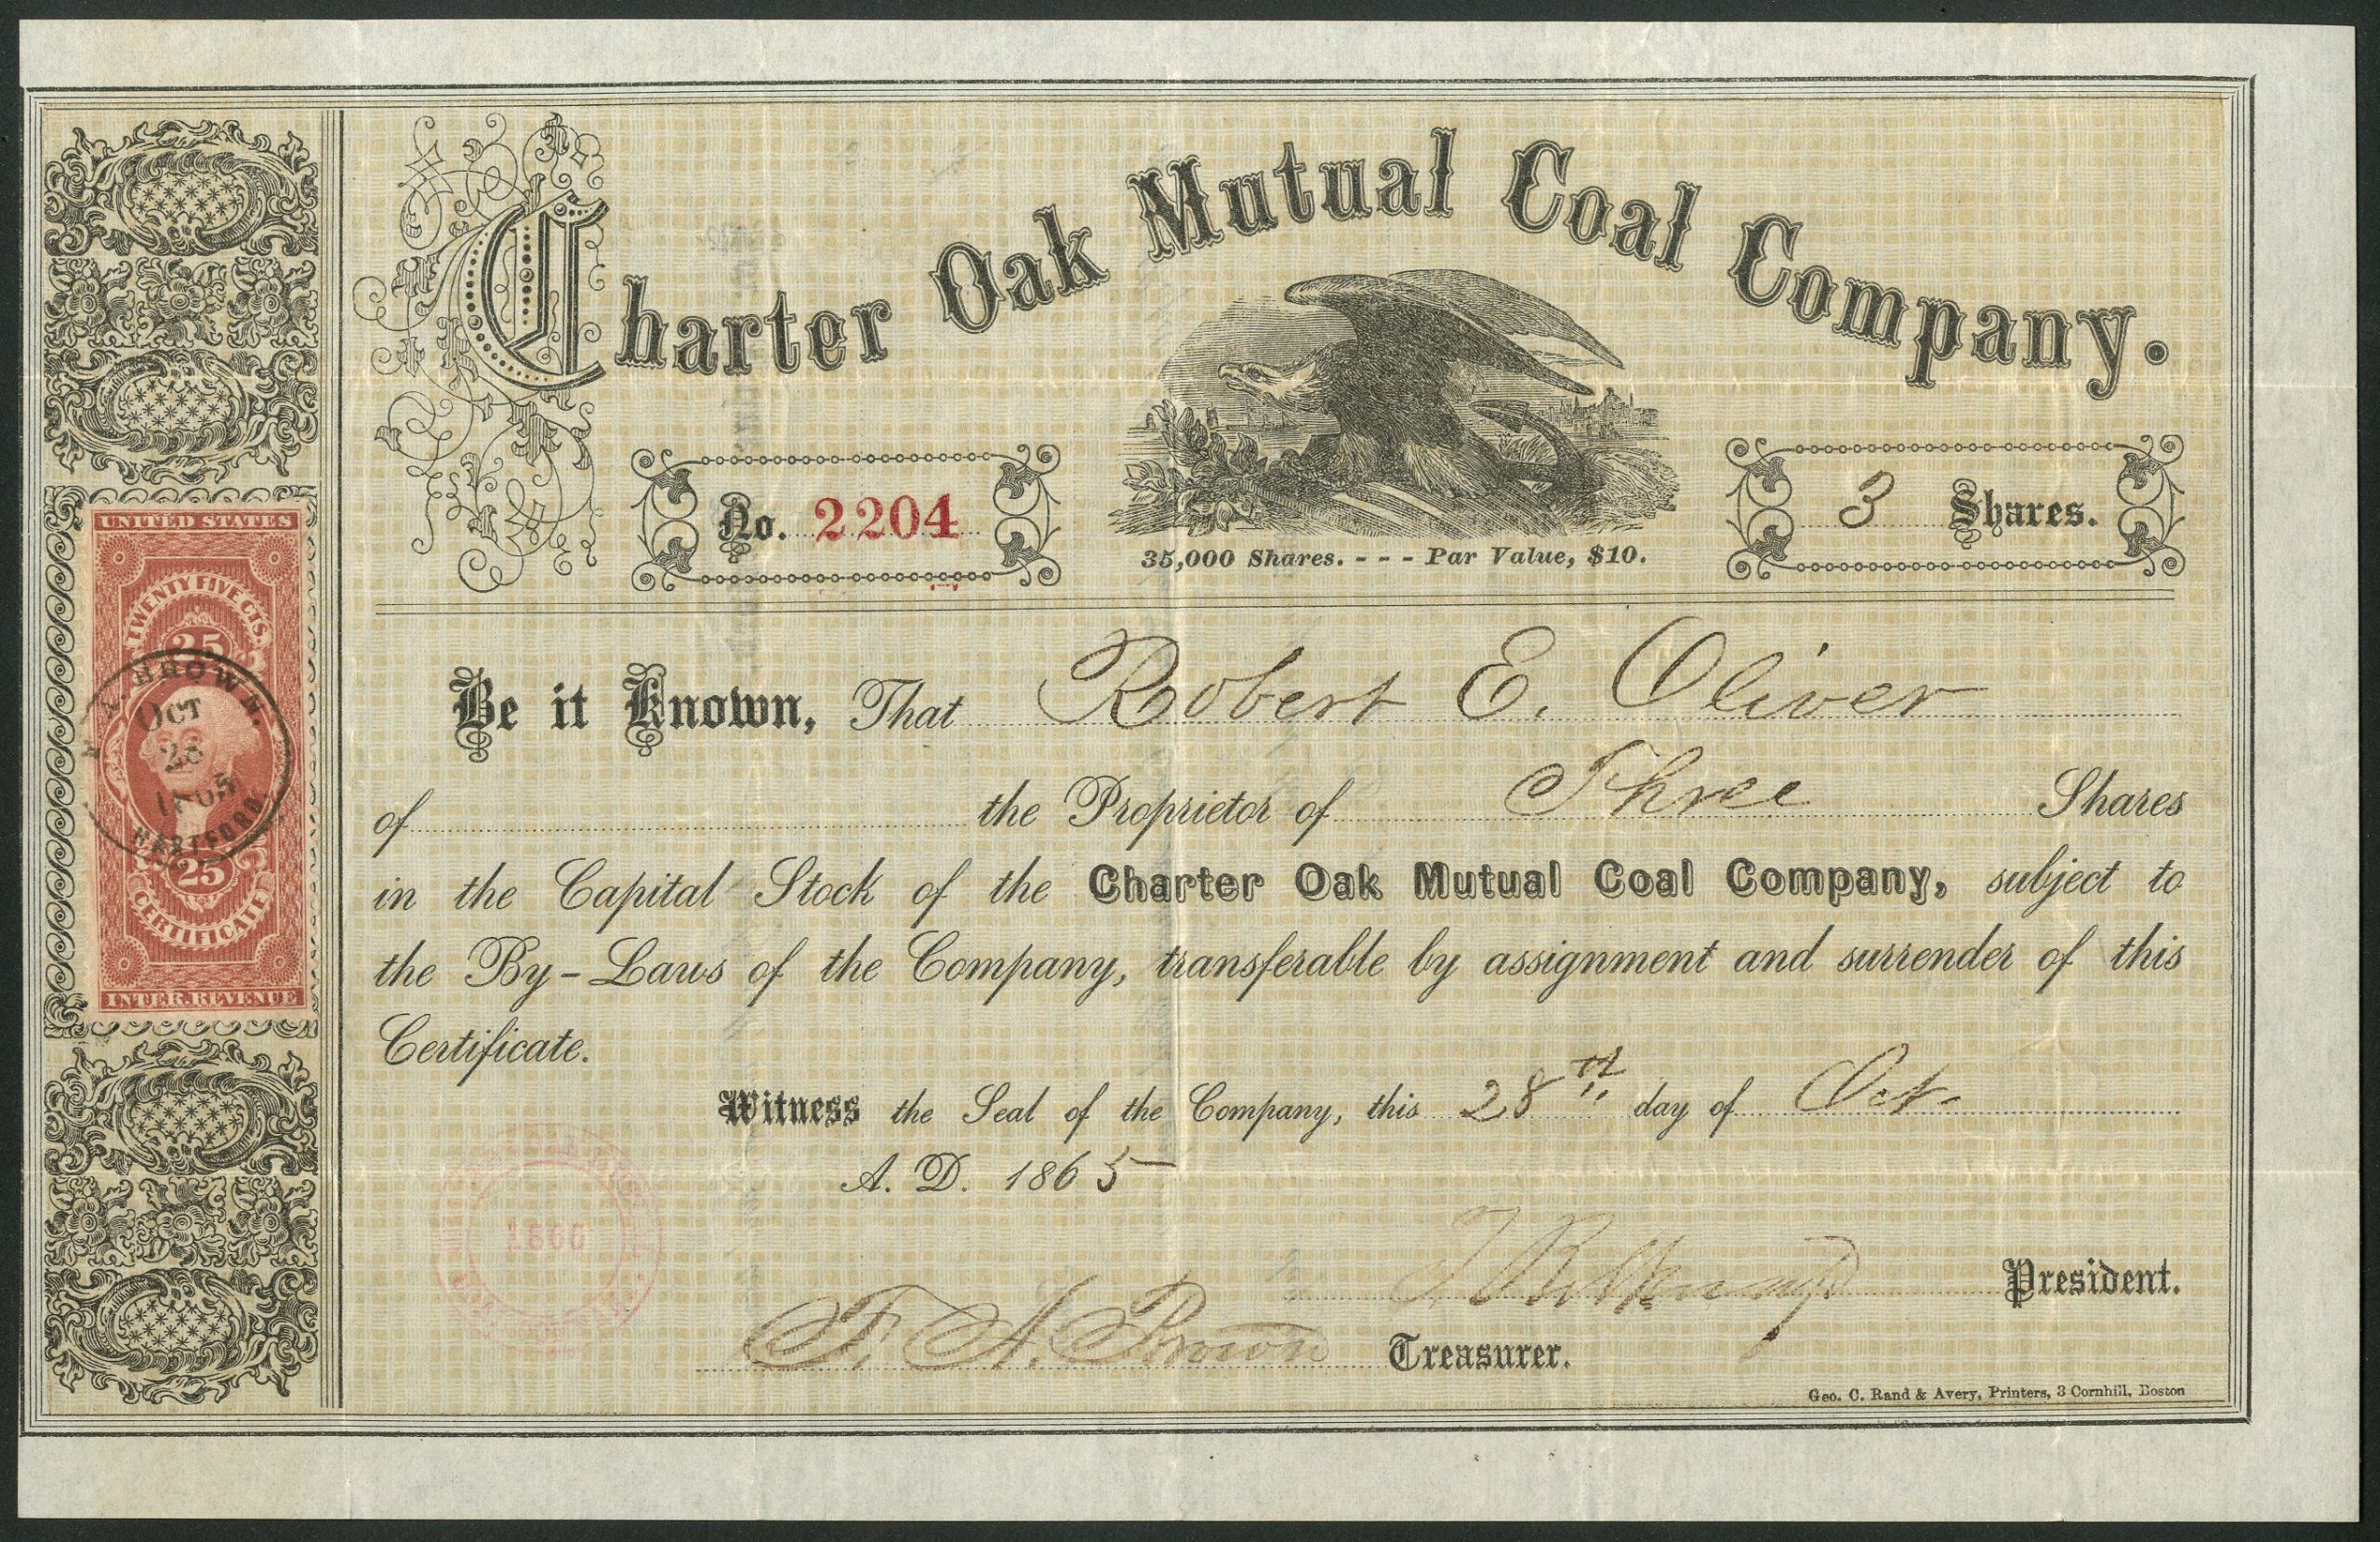 Charter Oak Mutual Coal Company.
No. 2204
35,000 Shares. - - - Par Value, $10.
3 Shares.
UNITED STATES
TWENTY FIVE CTS.
25
BROWN.
OCT
28
1865
HARTFORD
25
CERTIFICATE
INTER. REVENUE
Be it Known, That Robert E. Oliver
of the Proprietor of Three Shares
in the Capital Stock of the Charter Oak Mutual Coal Company, subject to
the By-Laws of the Company, transferable by assignment and surrender of this
Certificate.
Witness the Seal of the Company, this 28th day of Oct.
A. D. 1865
President.
F. A. Brown Treasurer.
Geo. C. Rand & Avery, Printers, 3 Cornhill, Boston